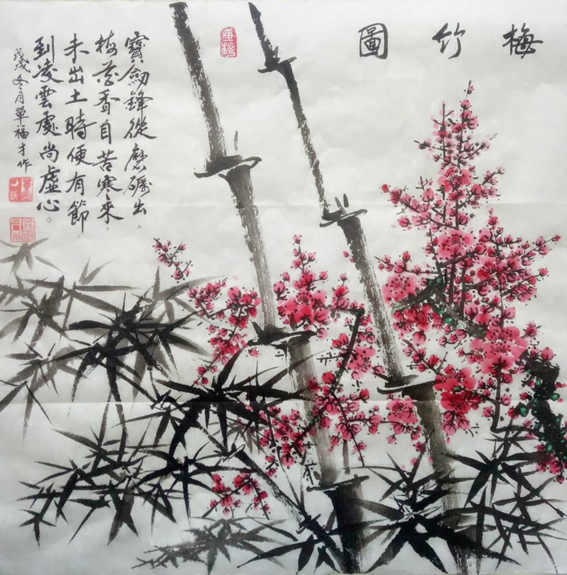 梅竹圖
寶劍鋒從磨礪出。
梅花香自苦寒來。
未出土時便有節
到凌雲處尚虛心。
戊戌冬月單福才作